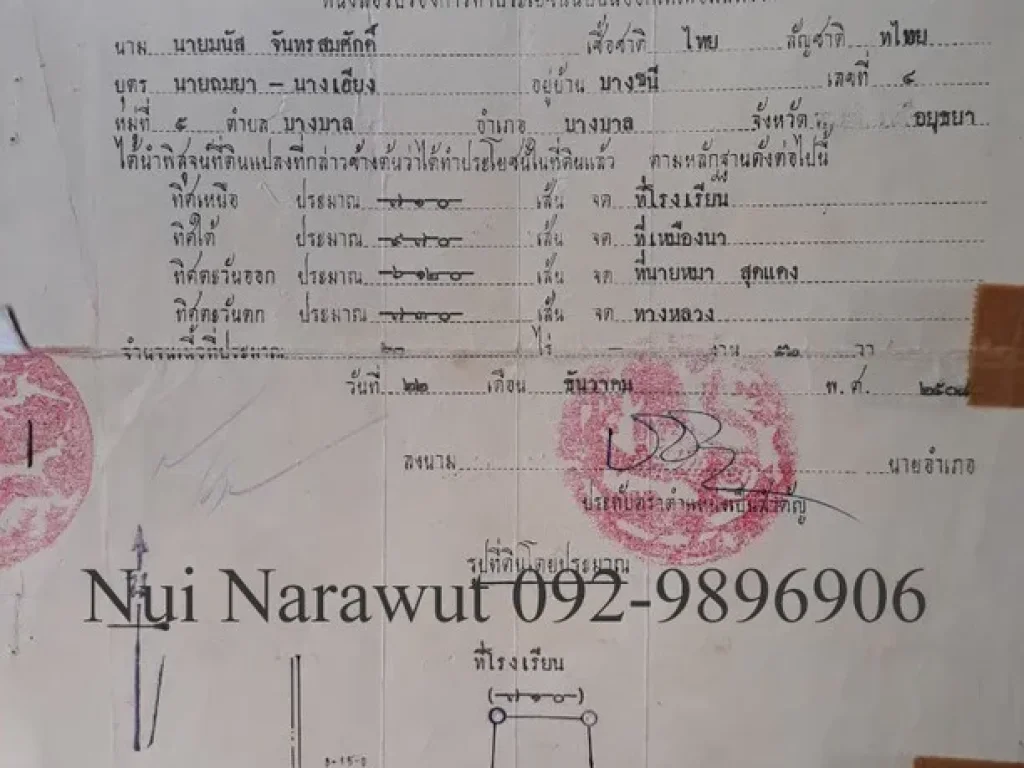 นาม นายมนัส จันทรสมศักดิ์ เชื้อชาติ ไทย สัญชาติ ทไทย
บุตร นายถมยา - นางเฮียง อยู่บ้าน บางชนี เลขที่ ๔
หมู่ที่ ๕ ตำบล บางบาล อำเภอ บางบาล จังหวัด อยุธยา
ได้นำพิสูจน์ที่ดินแปลงที่กล่าวข้างต้นว่าได้ทำประโยชน์ในที่ดินแล้ว ตามหลักฐานดังต่อไปนี้
ทิศเหนือ ประมาณ เส้น จด ที่โรงเรียน
ทิศใต้ ประมาณ เส้น จด ที่เหมืองนา
ทิศตะวันออก ประมาณ เส้น จด ที่นายหมา สุดแดง
ทิศตะวันตก ประมาณ เส้น จด ทางหลวง
จำนวนเนื้อที่ประมาณ ไร่ - งาน ๕๒ วา
วันที่ ๒๒ เดือน ธันวาคม พ.ศ.
ลงนาม นายอำเภอ
ประทับตราตำแหน่งเป็นสำคัญ
รูปที่ดินโดยประมาณ
Nui Narawut 092-9896906
ที่โรงเรียน